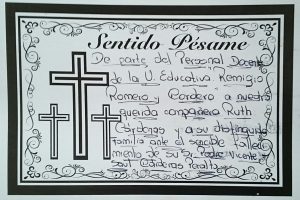 Sentido Pésame
De parte del Personal Docente
de la U. Educativa Remigio
Romero y Cordero a nuestra
querida compañera Ruth
Cárdenas y a su distinguida
familia ante el sensible falleci
miento de su Sr. Padre Vicente
Saul Cárdenas Peralta